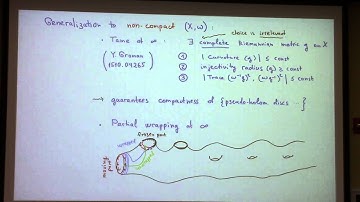 Generalization to non-compact (X,ω)
choice is irrelevant
• Tame at ∞ : ∃ complete Riemannian metric g on X
( Y. Groman 1510.04265 )
① | Curvature (g) | ≤ const
② injectivity radius (g) ≥ const
③ | Trace
→ guarantees compactness of {pseudo-holom discs ... }
• Partial wrapping at ∞
frozen part
wrapped
moving part